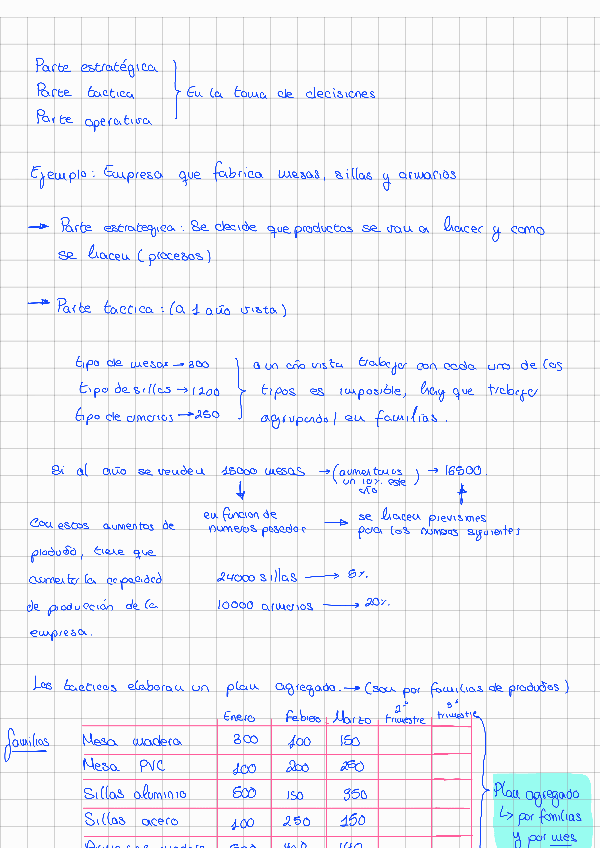 Parte estratégica
Parte tactica
Parte operativa
En la toma de decisiones
Ejemplo: Empresa que fabrica mesas, sillas y armarios
→ Parte estrategica: Se decide que productos se van a hacer y como
se hacen (procesos)
→ Parte tactica: (a 1 año vista)
tipo de mesas → 300
tipo de sillas → 1200
tipo de armarios → 250
a un año vista trabajar con cada uno de los
tipos es imposible, hay que trabajar
agrupando / en familias.
Si al año se venden 15000 mesas → (aumentamos un 10% este año) → 16500.
en funcion de
numeros pasados → se hacen previsiones
para los numeros siguientes
Con estos aumentos de
producto, tiene que
aumentar la capacidad
de producción de la
empresa.
24000 sillas → 5%
10000 armarios → 20%
Los tacticos elaboran un plan agregado. → (son por familias de productos)
Enero Febreo Marzo 2º trimestre 3º trimestre
familias
Mesa madera 300 100 150
Mesa PVC 100 200 250
Sillas aluminio 500 150 350
Sillas acero 100 250 150
Plan agregado
↳ por familias
y por mes